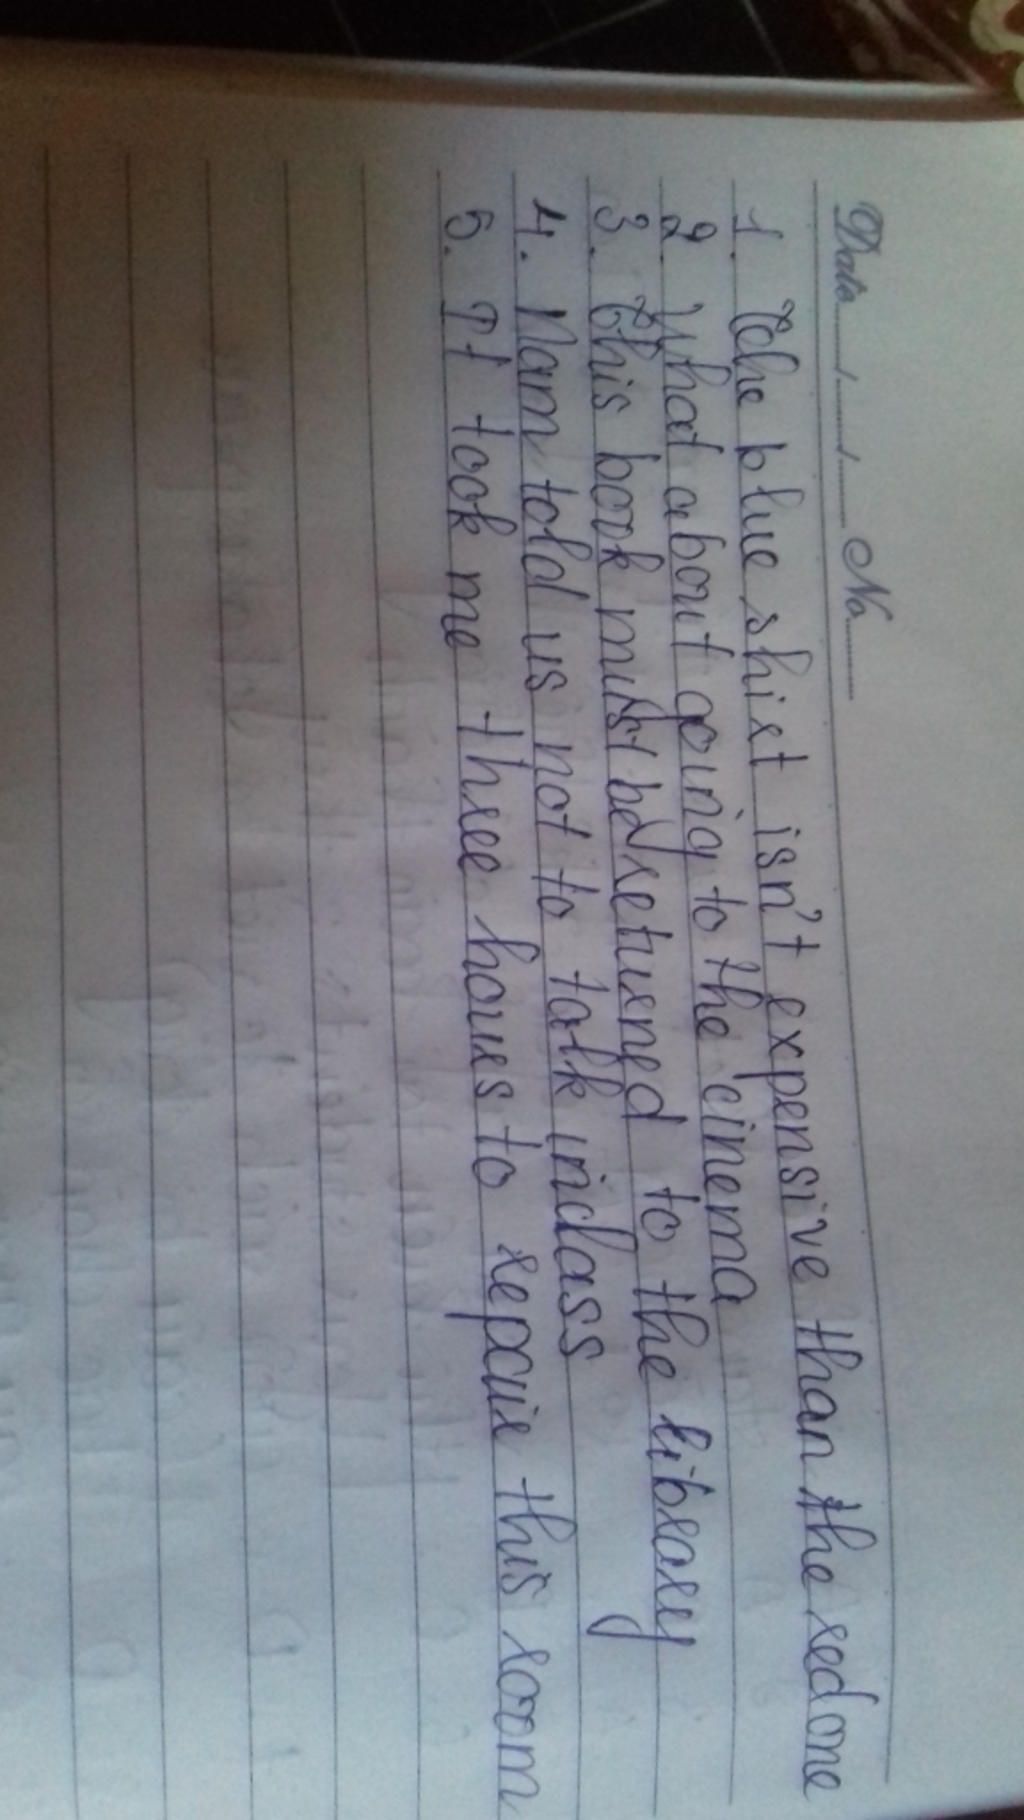 Date ...../...../..... No ........
1. The blue shirt isn't expensive than the redone
2. What about going to the cinema
3. This book must be returned to the library
4. Nam told us not to talk inclass
5. It took me three hours to repair this room